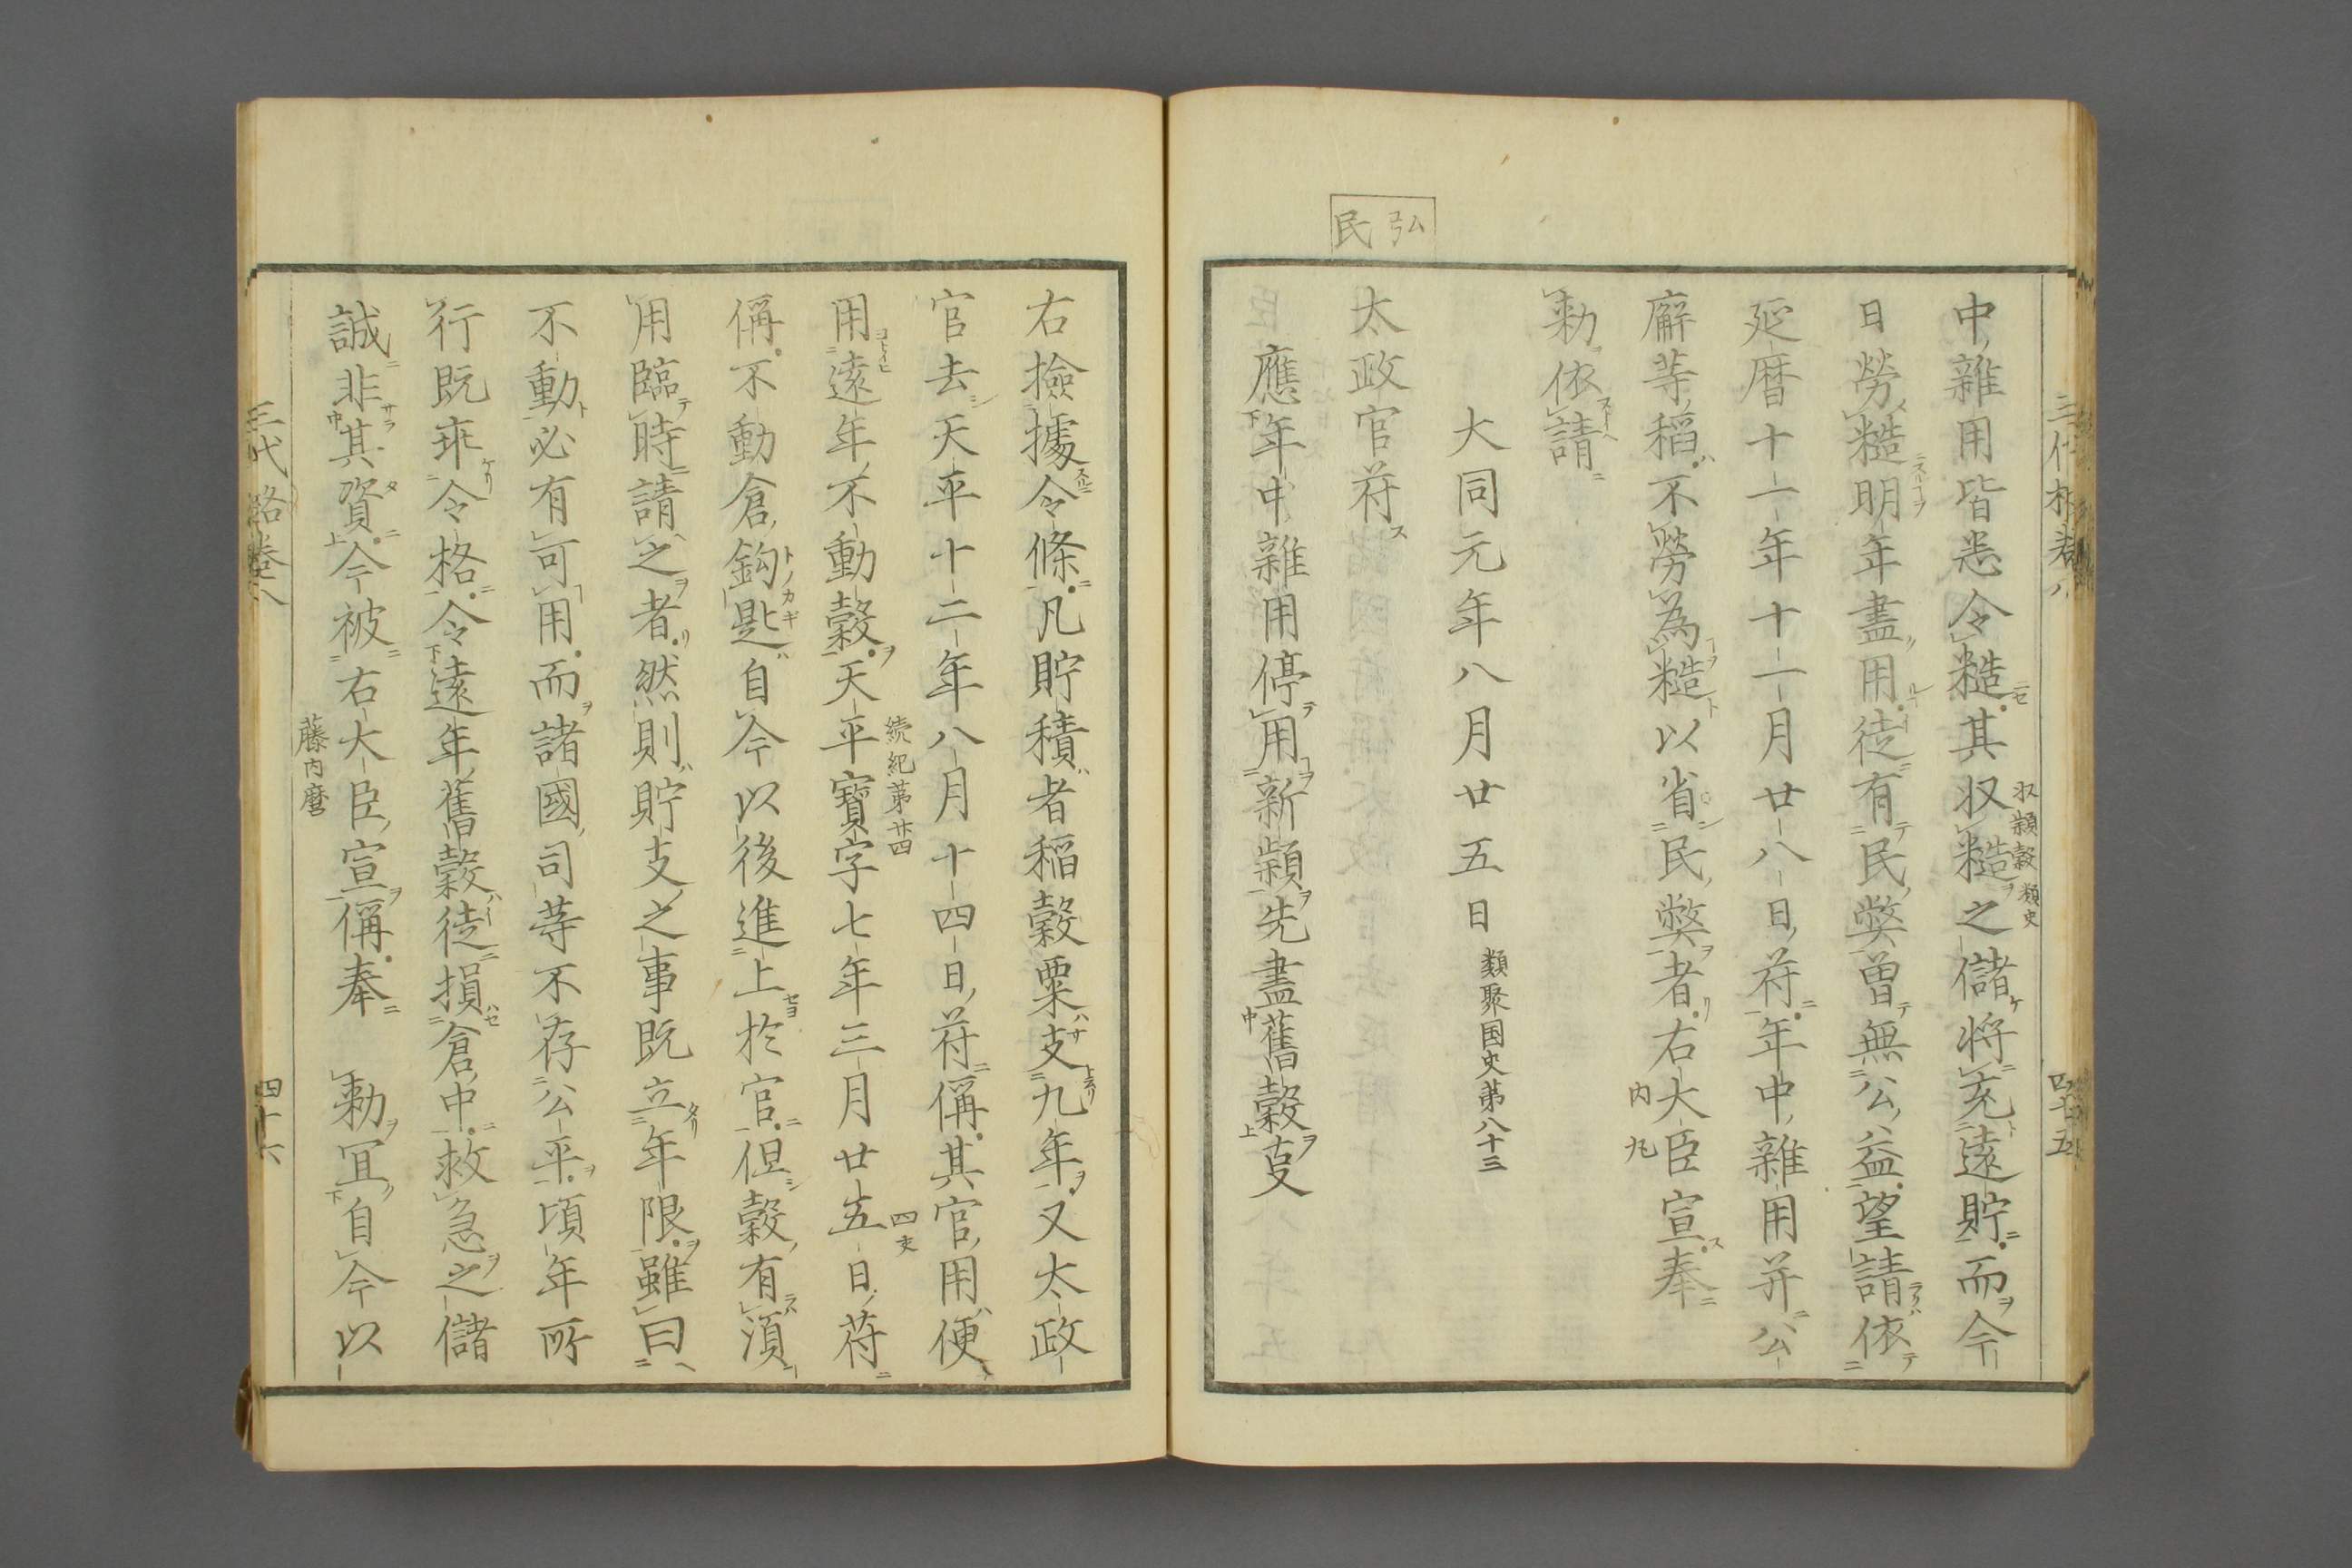 弘民
中雜用皆悉令糙其収糙之儲将充遠貯而今
収穎穀 類史
日勞糙明年盡用徒有民弊曽無公益望請依
延暦十一年十一月廿八日符年中雜用并公
廨等稻不勞為糙以省民弊者右大臣宣奉
内丸
勅依請
大同元年八月廿五日 類聚国史第八十三
太政官符
應年中雜用停用新穎先盡舊穀支
右撿據令條凡貯積者稲穀粟支九年又太政
官去天平十二年八月十四日符偁其官用便
用遠年不動穀天平寶字七年三月廿五日符
続紀第廿四
四支
偁不動倉鈎匙自今以後進上於官但穀有湏
用臨時請之者然則貯支之事既立年限雖曰
不動必有可用而諸國司等不存公平頃年所
行既乖令格令遠年舊穀徒損倉中救急之儲
誠非其資今被右大臣宣偁奉 勅冝自今以
藤内麿
三代格巻八 四十六